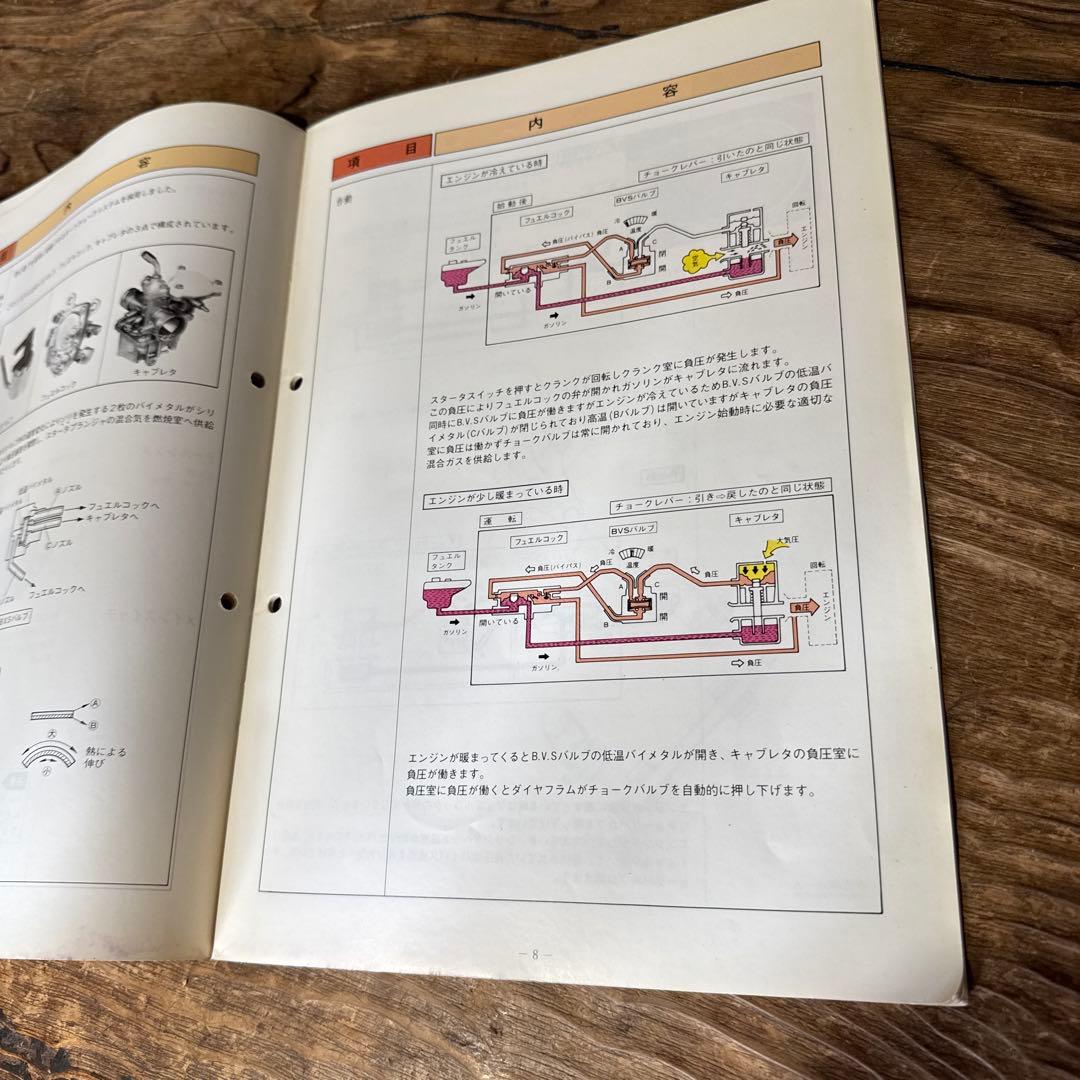 容
内
を採用しました。
キャブレタの3点で構成されています。
フュエルコック
キャブレタ
を発生する2枚のバイメタルがシリ
スタータプランジャの混合気を燃焼室へ供給
Ⓐノズル
フュエルコックへ
キャブレタへ
Ⓒノズル
フュエルコックへ
BVSバルブ
Ⓐ
Ⓑ
大
小
熱による
伸び
項 目
内 容
始動
エンジンが冷えている時
チョークレバー：引いたのと同じ状態
始動後
フュエルコック
BVSバルブ
キャブレタ
フュエル
タンク
負圧(バイパス)
負圧
冷
暖
温度
A
B
C
閉
開
空気
回転
負圧
エンジン
開いている
ガソリン
ガソリン
負圧
スタータスイッチを押すとクランクが回転しクランク室に負圧が発生します。
この負圧によりフュエルコックの弁が開かれガソリンがキャブレタに流れます。
同時にB.V.Sバルブに負圧が働きますがエンジンが冷えているためB.V.Sバルブの低温バ
イメタル(Cバルブ)が閉じられており高温(Bバルブ)は開いていますがキャブレタの負圧
室に負圧は働かずチョークバルブは常に開かれており、エンジン始動時に必要な適切な
混合ガスを供給します。
エンジンが少し暖まっている時
チョークレバー：引き⇨戻したのと同じ状態
運 転
フュエルコック
BVSバルブ
キャブレタ
フュエル
タンク
負圧(バイパス)
負圧
冷
暖
温度
A
B
C
開
開
負圧
大気圧
回転
負圧
エンジン
開いている
ガソリン
ガソリン
負圧
エンジンが暖まってくるとB.V.Sバルブの低温バイメタルが開き、キャブレタの負圧室に
負圧が働きます。
負圧室に負圧が働くとダイヤフラムがチョークバルブを自動的に押し下げます。
－8－